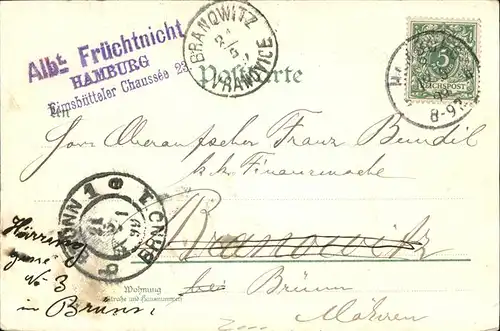 Albt. Früchtnicht
HAMBURG
Eimsbütteler Chaussée 23
BRANOWITZ
VRANOVICE
Postkarte
5
REICHSPOST
8-9
Herrn Oberaufseher Franz Bundil
k.k. Finanzwache
Branowitz
bei Brünn
Mähren
BRÜNN 1
BRNO
No 3
in Brünn
Wohnung
(Straße und Hausnummer)